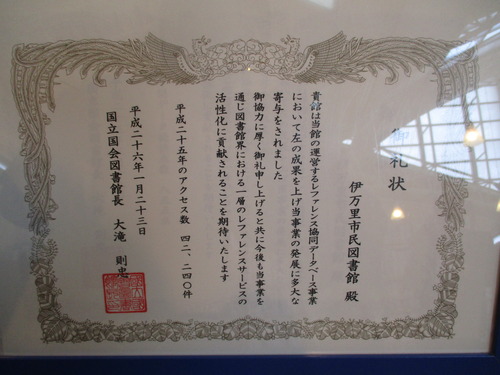 御礼状
伊万里市民図書館 殿
貴館は当館の運営するレファレンス協同データベース事業
において左の成果を上げ当事業の発展に多大な
寄与をされました
御協力に厚く御礼申し上げると共に今後も当事業を
通じ図書館界における一層のレファレンスサービスの
活性化に貢献されることを期待いたします
平成二十五年のアクセス数 四二、二四〇件
平成二十六年一月二十三日
国立国会図書館長 大滝 則忠